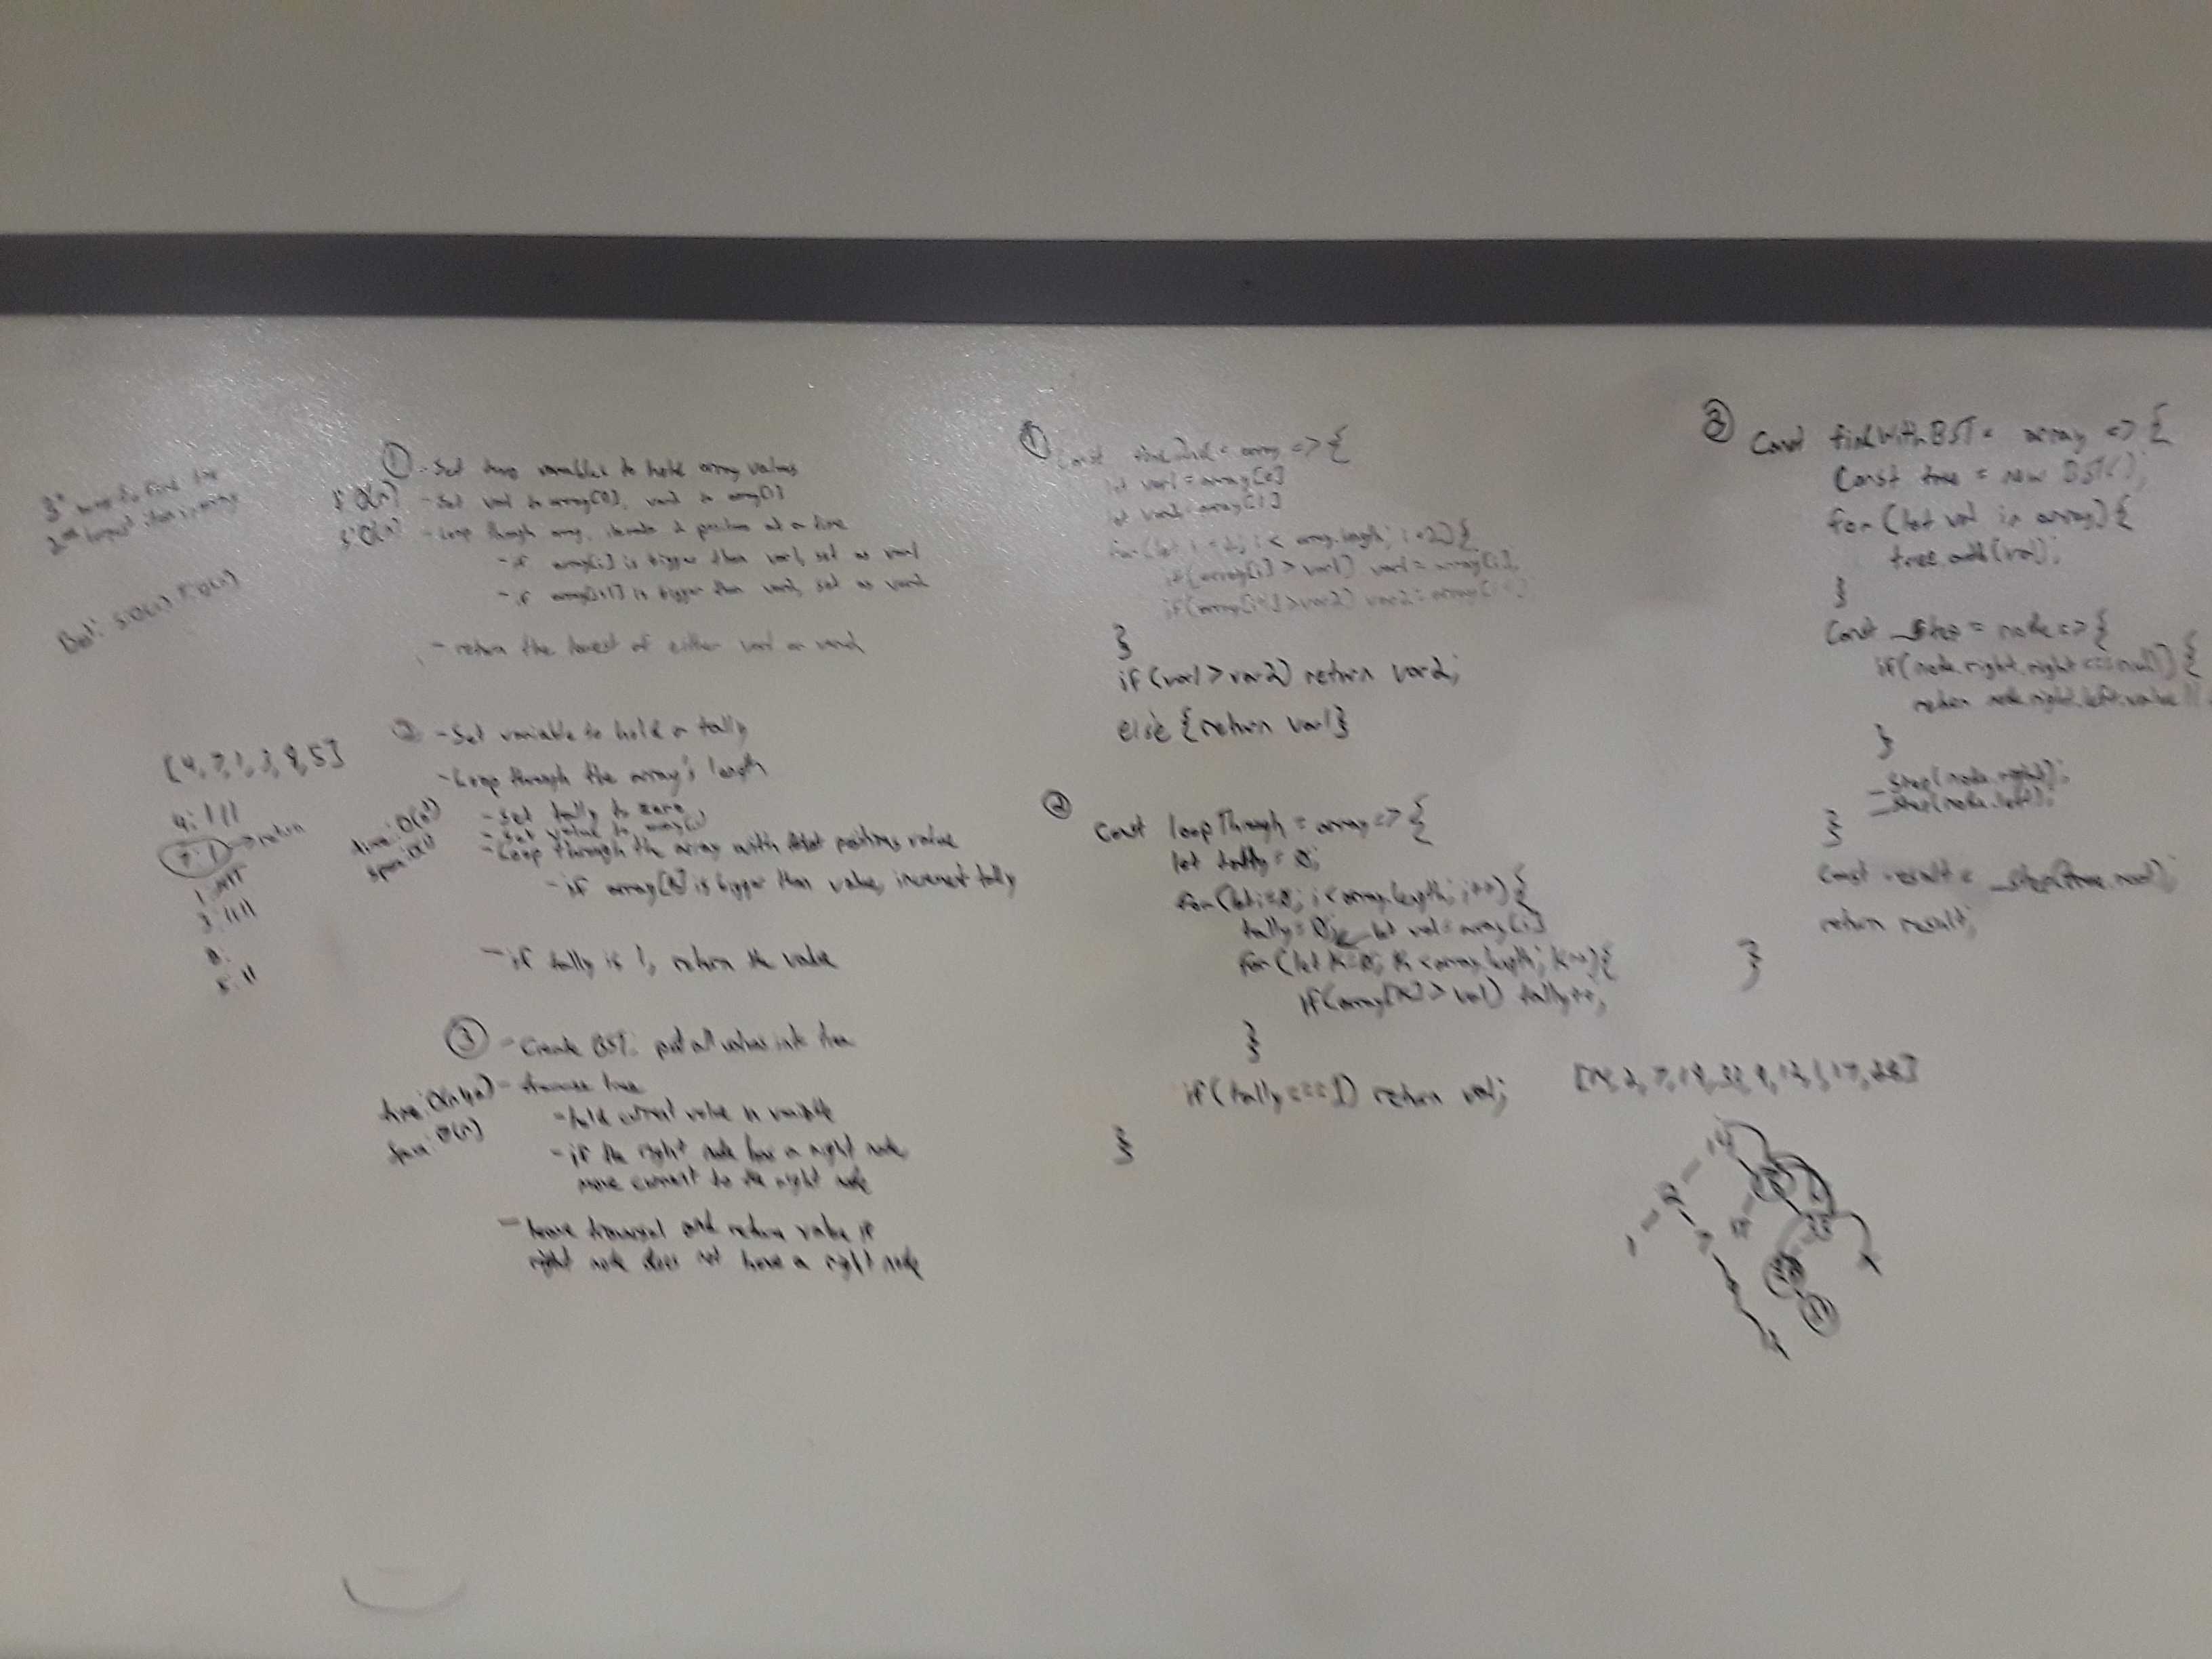 3 ways to find the
2nd largest item in array
Best: S:O(1) T:O(n)
[4, 7, 1, 3, 9, 5]
4: 111
7: 1 → return
3: 1111
5: 11
① - Set two variables to hold array values
- Set var1 to array[0], var2 to array[1]
- Loop through array, iterate 2 positions at a time
- if array[i] is bigger than var1, set as var1
- if array[i+1] is bigger than var2, set as var2
- return the lowest of either var1 or var2
② - Set variable to hold a tally
- Loop through the array's length
time: O(n²)
- Set tally to zero
- Set value to array[i]
- Loop through the array with positions value
- if array[k] is bigger than value, increment tally
- if tally is 1, return the value
③ - Create BST: put all values into tree
- traverse tree
space: O(n)
- hold current value in variable
- if the right node has a right node,
move current to the right node
- leave traversal and return value if
right node does not have a right node
① const = array => {
let var1 = array[0]
let var2 = array[1]
for(let i = 2; i < array.length; i+2){
if(array[i] > var1) var1 = array[i];
if(array[i+1] > var2) var2 = array[i+1]
}
if(var1 > var2) return var2;
else {return var1}
② const loopThrough = array => {
let tally = 0;
for(let i=0; i < array.length; i++) {
tally = 0; let val = array[i]
for(let k=0; k < array.length; k++){
if(array[k] > val) tally++;
}
if(tally === 1) return val;
}
③ const findWithBST = array => {
const tree = new BST();
for(let val in array){
tree.add(val);
}
const _step = node => {
if(node.right.right === null) {
return node.right.left.value ||
}
_step(node.right);
_step(node.left);
}
const result = _step(tree.root);
return result;
}